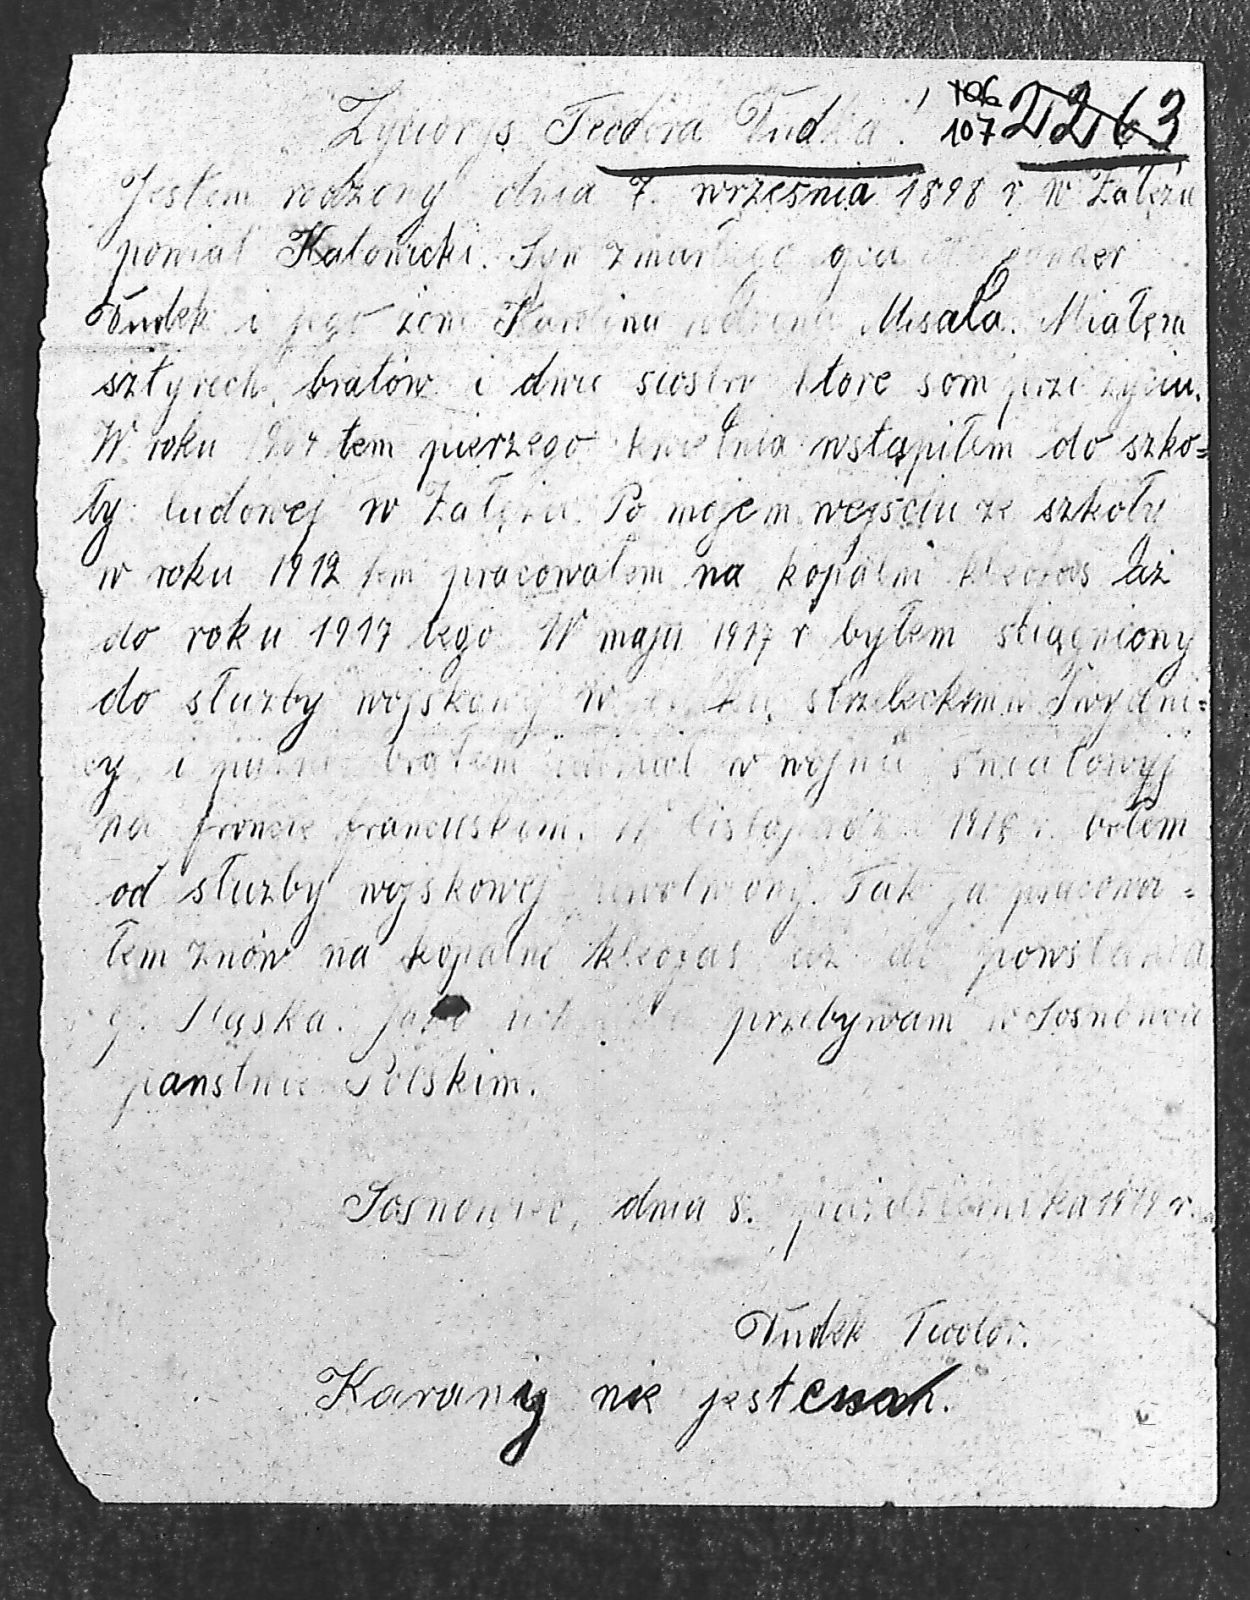 106
107 2263
Życiorys Teodora Dudka!
Jestem rodzony dnia 7. września 1898 r. w Załężu
powiat Katowicki. Syn zmarłego ojca
Dudek i jego żony Karolina rodzona Misala. Miałem
sztyrech bratów i dwie siostry ktore som przi życiu.
W roku 1904 tem pierzego kwietnia wstąpiłem do szko=
ły ludowej w Załężu. Po mojem wejsciu ze szkoły
w roku 1912 tem pracowałem na kopalni kleofas aż
do roku 1917 tego. W maju 1917 r byłem sciągniony
do słuzby wojskowej w strzeleckim w Swydni=
cy i brałem udział w wojnie swiatowyj
na froncie francuskim. W listopadzie 1918 r. bełem
od słuzby wojskowej uwolniony. Tak ja pracowa=
łem znów na kopalni kleofas aż do powstania
g. Sląska. Jako przebywam w Sosnowcu
panstwie Polskim.
Sosnowiec, dnia 8. pażdziernika 1919 r.
Dudek Teodor.
Karany nie jestem.